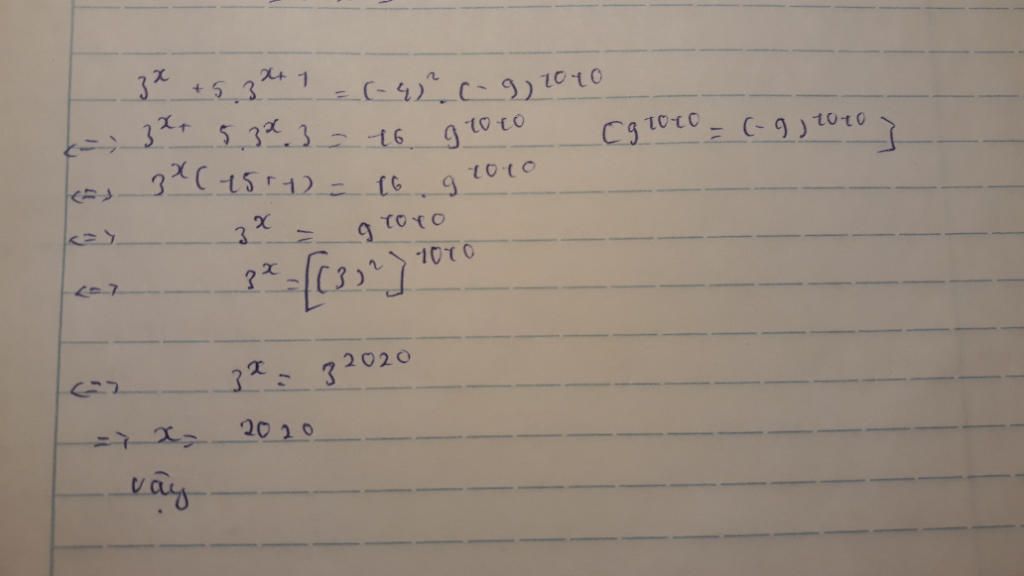 3^x + 5.3^{x+1} = (-4)^2.(-9)^{1010}
<=> 3^x + 5.3^x.3 = 16. 9^{1010} [9^{1010} = (-9)^{1010}]
<=> 3^x(15+1) = 16.9^{1010}
<=> 3^x = 9^{1010}
<=> 3^x = [(3)^2]^{1010}
<=> 3^x = 3^{2020}
=> x = 2020
vậy